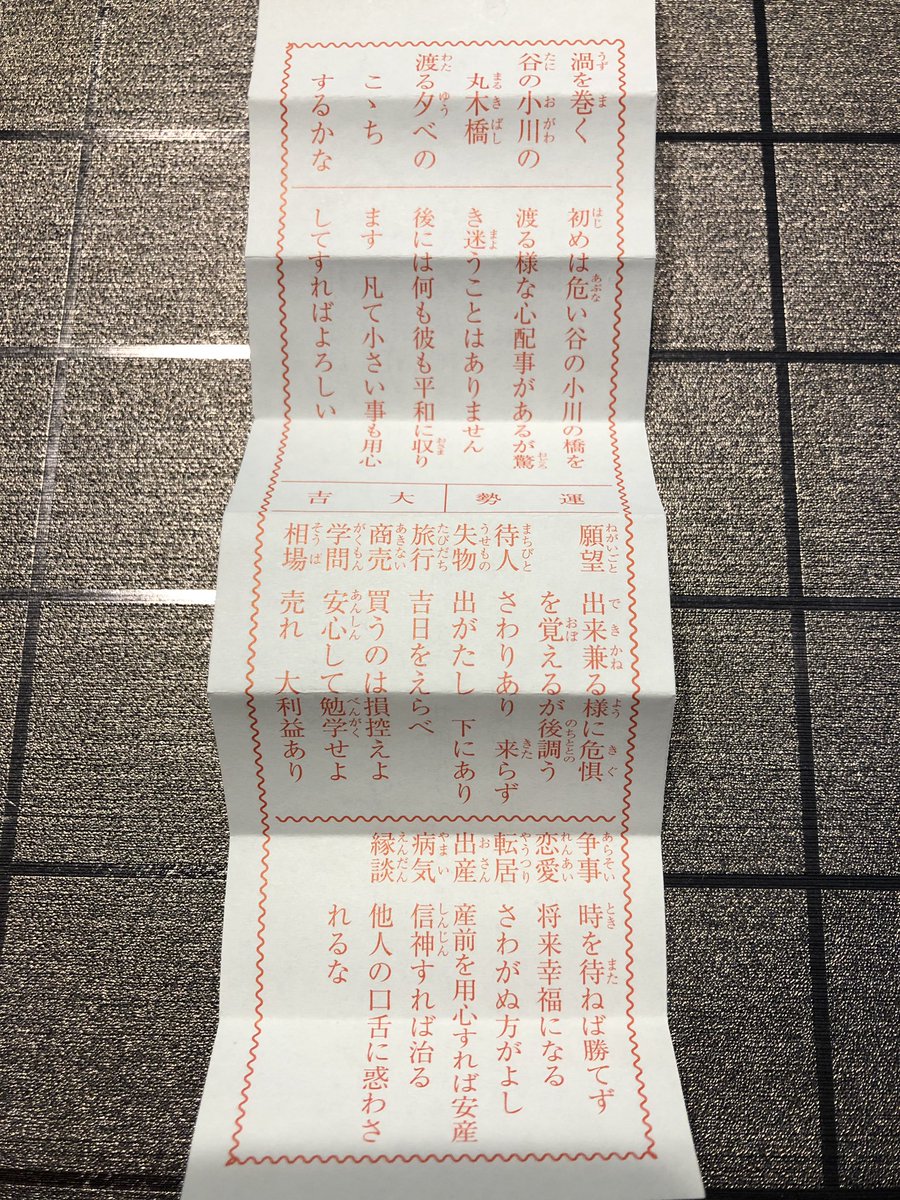 渦を巻く
谷の小川の
丸木橋
渡る夕べの
こゝち
するかな
初めは危い谷の小川の橋を
渡る様な心配事があるが驚
き迷うことはありません
後には何も彼も平和に収り
ます 凡て小さい事も用心
してすればよろしい
運勢 大吉
願望 出来兼る様に危惧
を覚えるが後調う
待人 さわりあり 来らず
失物 出がたし 下にあり
旅行 吉日をえらべ
商売 買うのは損控えよ
学問 安心して勉学せよ
相場 売れ 大利益あり
争事 時を待ねば勝てず
恋愛 将来幸福になる
転居 さわがぬ方がよし
出産 産前を用心すれば安産
病気 信神すれば治る
縁談 他人の口舌に惑わさ
れるな